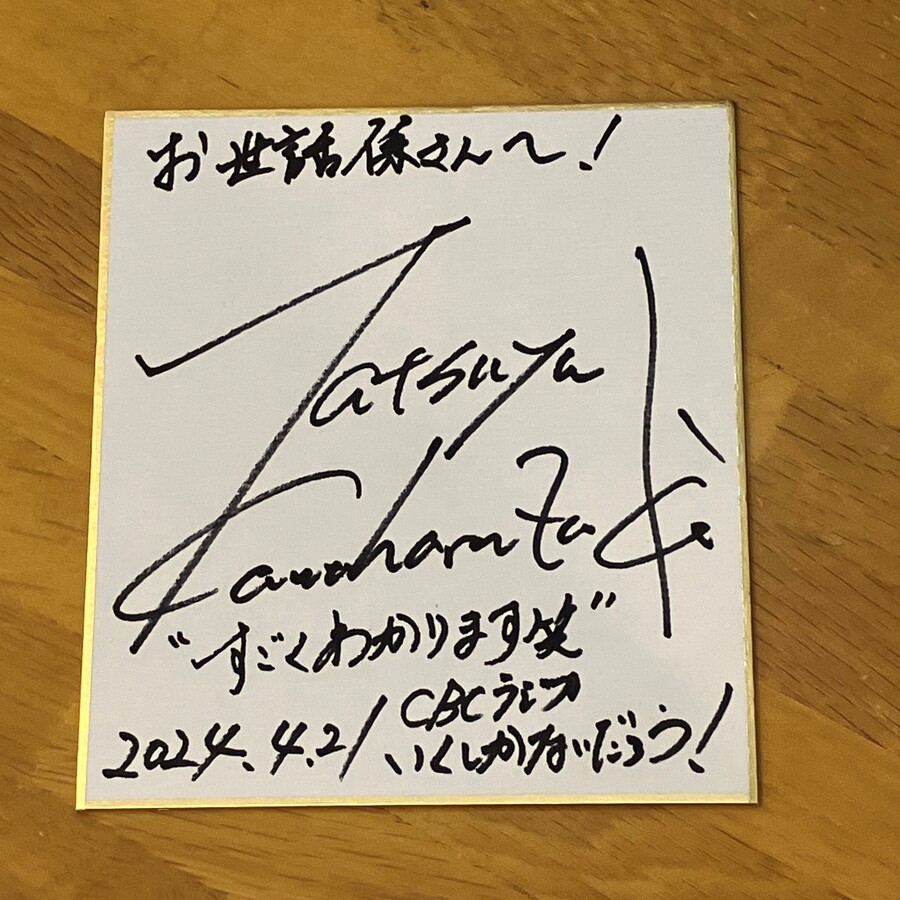 お世話様さんへ!
Tatsuya
Kawaharazaki
"すごくわかります笑"
2024.4.21
CBCラジオ
いくしかないだろう!